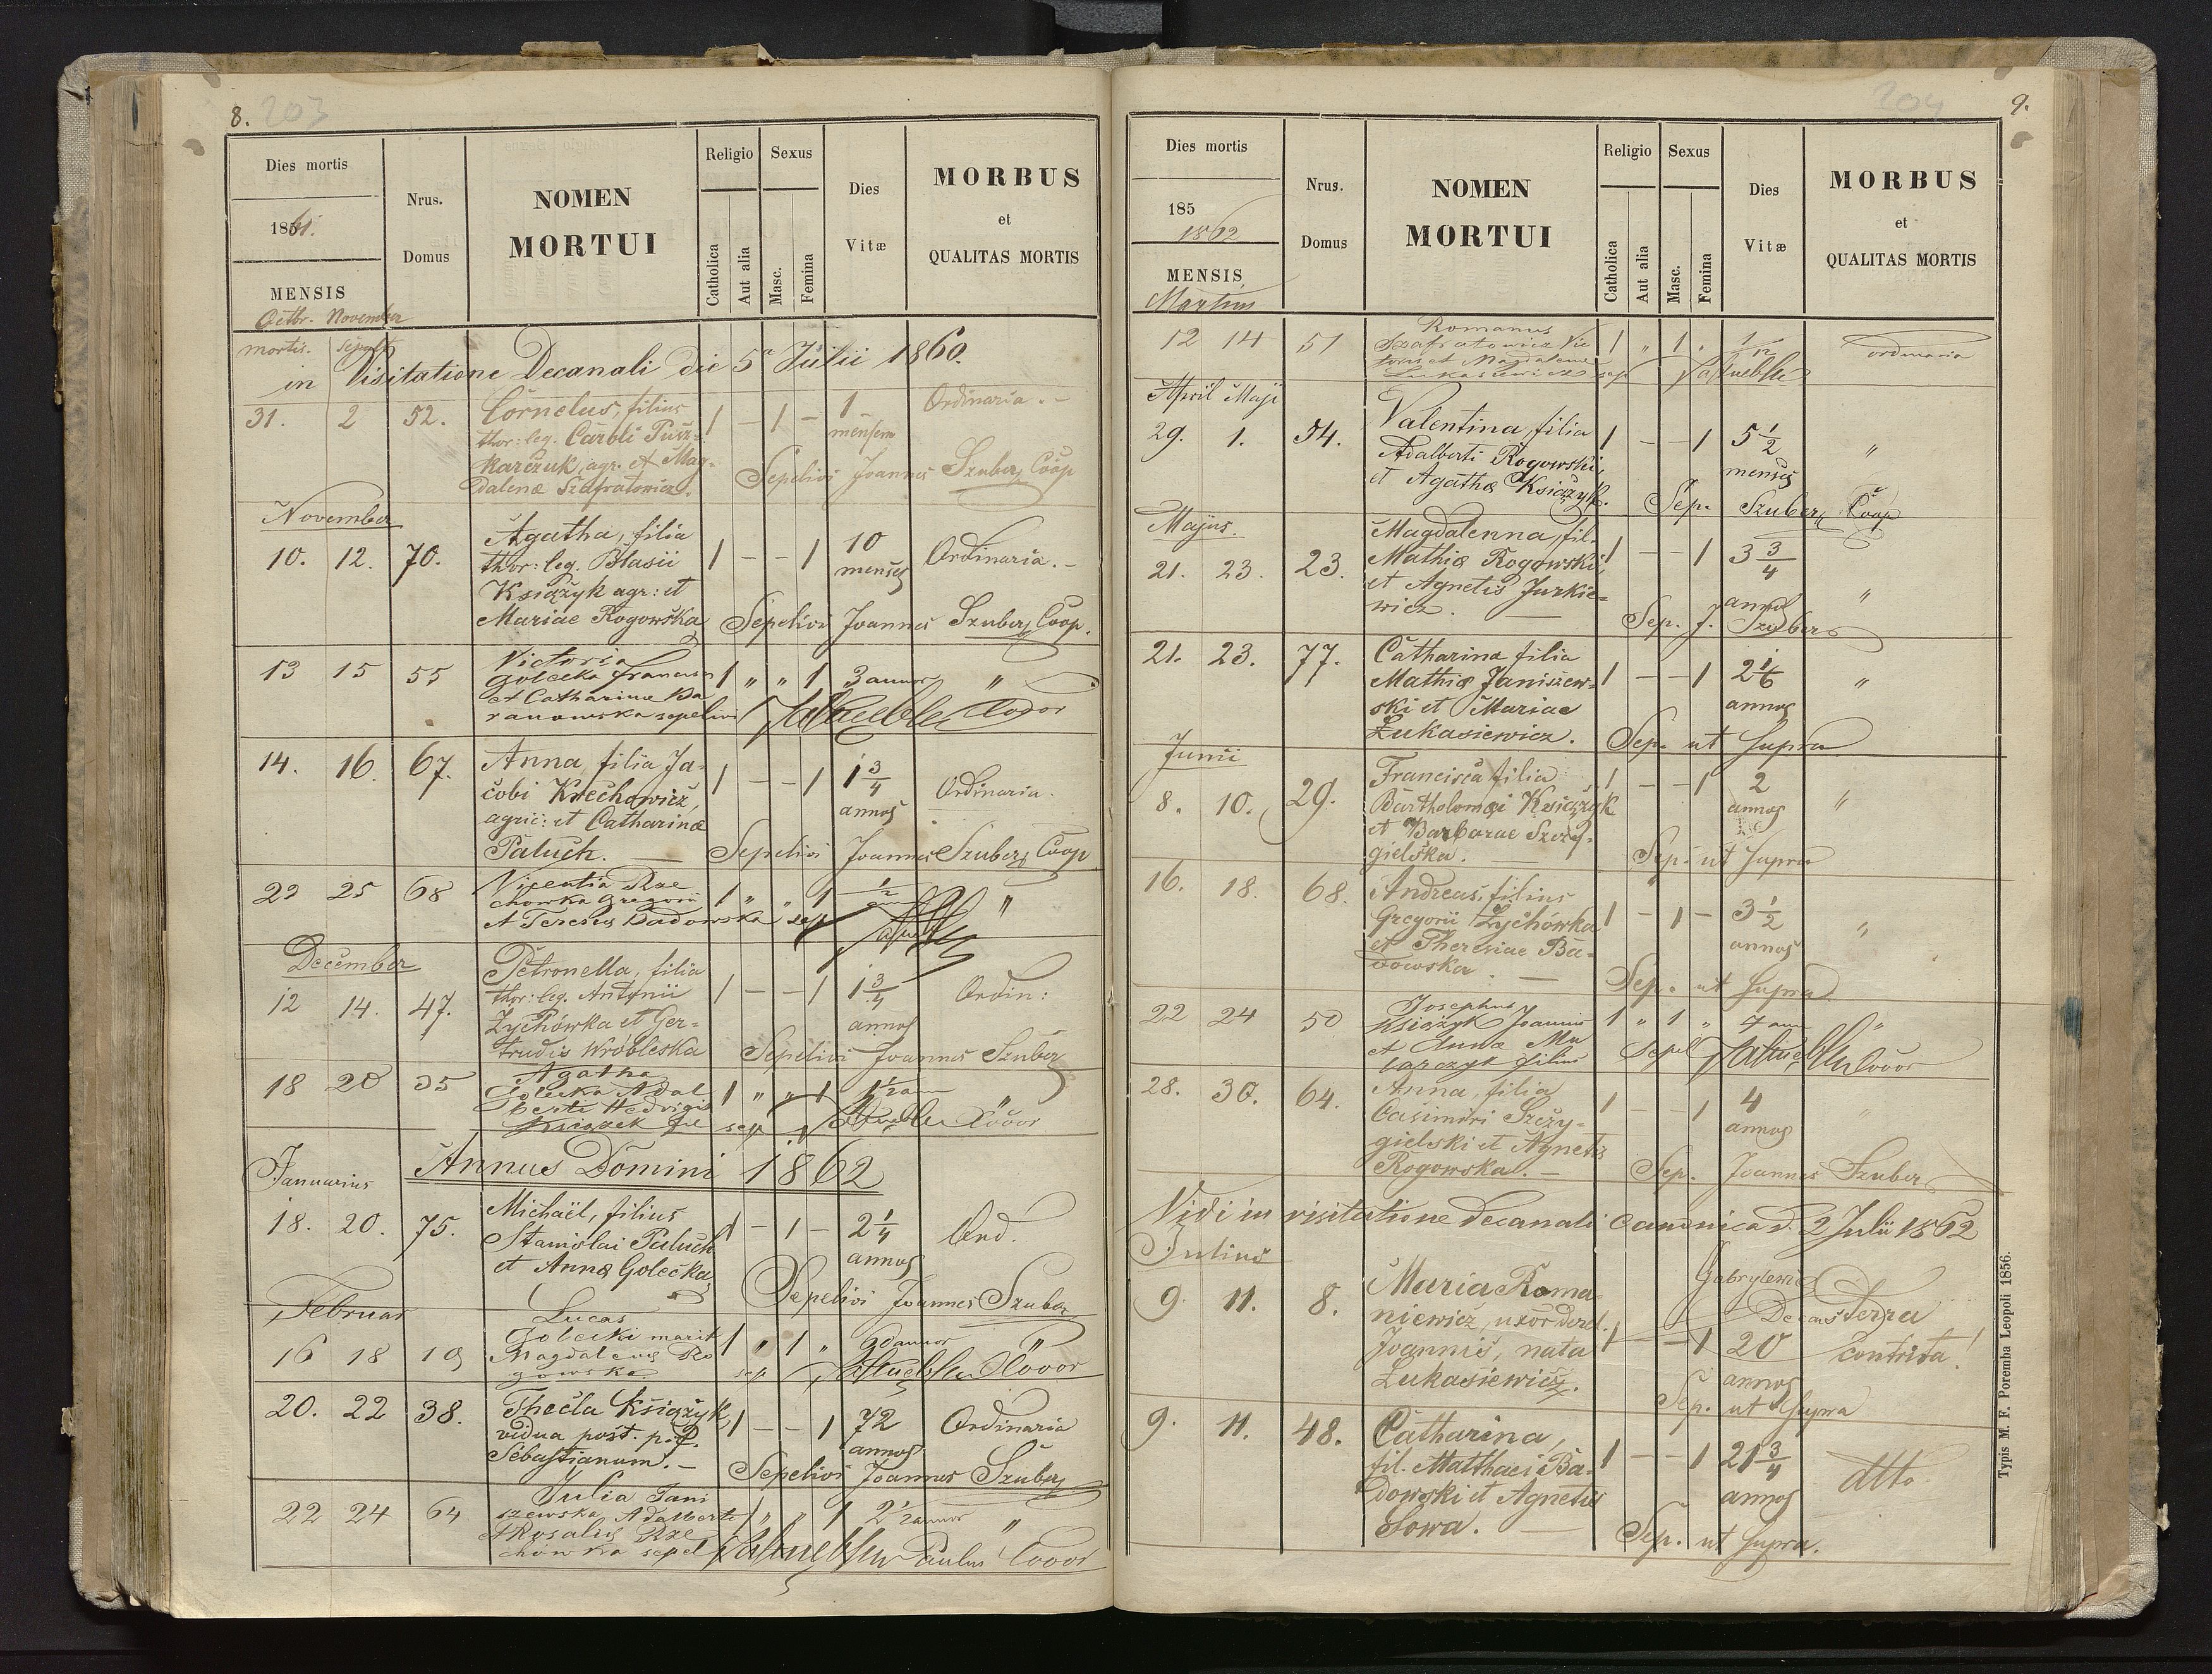 8. 203
Dies mortis
1861.
MENSIS
Octbr. November
Nrus.
Domus
NOMEN
MORTUI
Religio
Catholica
Aut alia
Sexus
Masc.
Femina
Dies
Vitæ
MORBUS
et
QUALITAS MORTIS
mortis. sepult
in Visitatione Decanali die 5a Julii 1860.
31. 2 52. Cornelus, filius 1 – 1 – 1 Ordinaria. –
thor: leg. Caroli Pusz- mensem
karczuk, agr. et Mag-
dalenæ Szafratowicz. Sepelivi Joannes Szuber Coop
November
10. 12. 70. Agatha, filia 1 – – 1 10 Ordinaria. –
thor: leg. Blasii menses
Książyk agr: et
Mariae Rogowska Sepelivi Joannes Szuber Coop.
13 15 55 Victoria 1 „ „ 1 3 annor „
Golecka Francisci
et Catharinæ Ba
ranowska sepelivi
14. 16. 67. Anna, filia Ja- 1 – – 1 1 3/4 Ordinaria.
cobi Krechowicz, annos
agric: et Catharinæ
Paluch. — Sepelivi Joannes Szuber Coop
22 25 68 1 „ „ 1 1/2 „
chowka Gregorii
et Teresiæ Badowska sep
December
12 14. 47. Petronella, filia 1 – – 1 1 3/4 Ordin:
thor: leg. Antonii annos
Zychówka et Ger-
trudis Wróbleska Sepelivi Joannes Szuber
18 20 35 Agatha 1 „ „ 1 1 1/2 an „
Golecka Adal
berti Hedvigis
Książek fil sep
Annus Domini 1862
Januarius
18. 20. 75. Michaël, filius 1 – 1 – 2 1/4 Ord.
Stanislai Paluch annos
et Annæ Golecka. Sepelivi Joannes Szuber
Februar
16 18 19 Lucas 1 „ 1 „ „
Golecki marit
Magdalenæ Ro
gowska sep
20. 22 38. Thecla Książyk 1 – – 1 72 Ordinaria
vidua post. p. d. annos
Sebastianum. – Sepelivi Joannes Szuber
22 24 64 Julia Jani 1 „ „ 1 2 1/2 annor „
szewska Adalberti
et Rosaliæ Rze
chówka sepel Paulus
204 9.
Dies mortis
185
1862
MENSIS
Martius
Nrus.
Domus
NOMEN
MORTUI
Religio
Catholica
Aut alia
Sexus
Masc.
Femina
Dies
Vitæ
MORBUS
et
QUALITAS MORTIS
12 14 51 Romanus 1 „ 1 . 1/12 ordinaria
Szafratowicz Vic
toris et Magdalenæ
Lukasiewicz sep
April Maji
29. 1. 54. Valentina, filia 1 – – 1 5 1/2 „
Adalberti Rogowski, menses
et Agathæ Książyk. Sep. Szuber Coop
Majus.
21. 23. 23. Magdalenna, fil. 1 – – 1 3 3/4 „
Mathiæ Rogowski annos
et Agnetis Jurkie-
wicz. — Sep. J. Szuber
21. 23. 77. Catharina filia 1 – – 1 2 1/6 „
Mathiæ Janiszew- annos
ski et Mariae
Łukasiewicz. Sep. ut supra
Junii
8. 10. 29. Francisca filia 1 – – 1 2 „
Bartholomæi Książyk annos
et Barbarae Szczy-
gielska. — Sep. ut supra
16. 18. 68. Andreas, filius 1 – 1 – 3 1/2 „
Gregorii Zychówka annos
et Theresiae Ba-
dowska. — Sep. ut supra
22 24 50 Josephus 1 „ 1 „ 4 ann „
Książyk Joannis
et Annæ Mu
larczyk filius Sepel
28. 30. 64. Anna, filia 1 – – 1 4 „
Casimiri Szczy- annos
gielski et Agnetis
Rogowska. – Sep. Joannes Szuber
Vidi in visitatione decanali canonica d. 2 Julii 1862
Gabrylewicz
Decanus
Julius
9. 11. 8. Maria Roma- 1 – – 1 20 Terra
niewicz, uxor derel. annos contrita!
Joannis, nata
Łukasiewicz. Sep. ut supra
9. 11. 48. Catharina, 1 – – 1 21 3/4 dtto
fil. Matthaei Ba- annos
dowski et Agnetis
Sowa. — Sep. ut supra.
Typis M. F. Poremba Leopoli 1856.